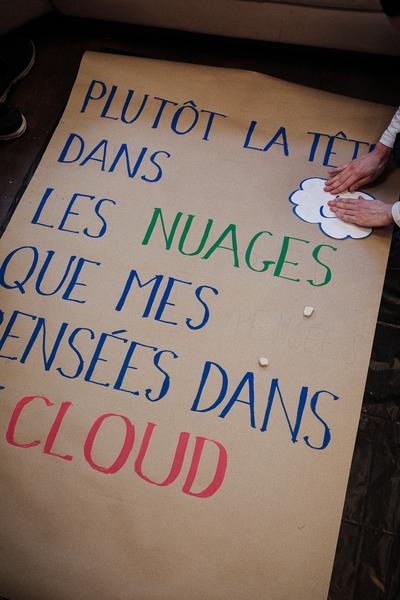 PLUTÔT LA TÊTE
DANS
LES NUAGES
QUE MES
PENSÉES DANS
CLOUD